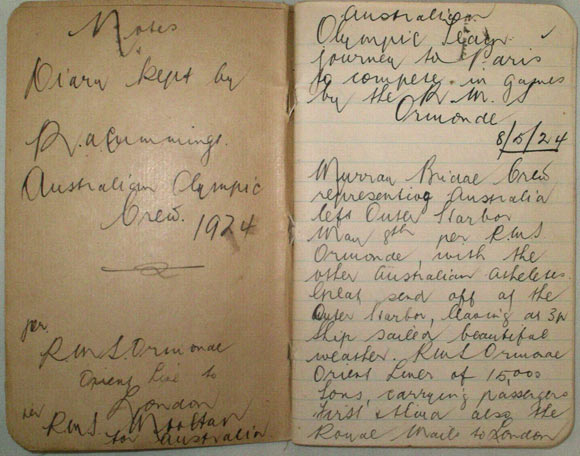 Notes
Diary kept by
R. A Cummings.
Australian Olympic
Crew. 1924
per
R.M.S Ormonde
Orient Line to
London
per R.M.S Mooltan
to Australia
Australian
Olympic Team
journey to Paris
to compete in games
by the R.M.S
Ormonde
8/5/24
Murray Bridge Crew
representing Australia
left Outer Harbor
May 8th per R.M.S
Ormonde, with the
other Australian Atheletes.
Great send off at the
Outer Harbor, leaving at
ship sailed beautiful
weather. R.M.S Ormonde
Orient Liner of 15,000
tons, carrying passengers
first third also the
Royal Mails to London